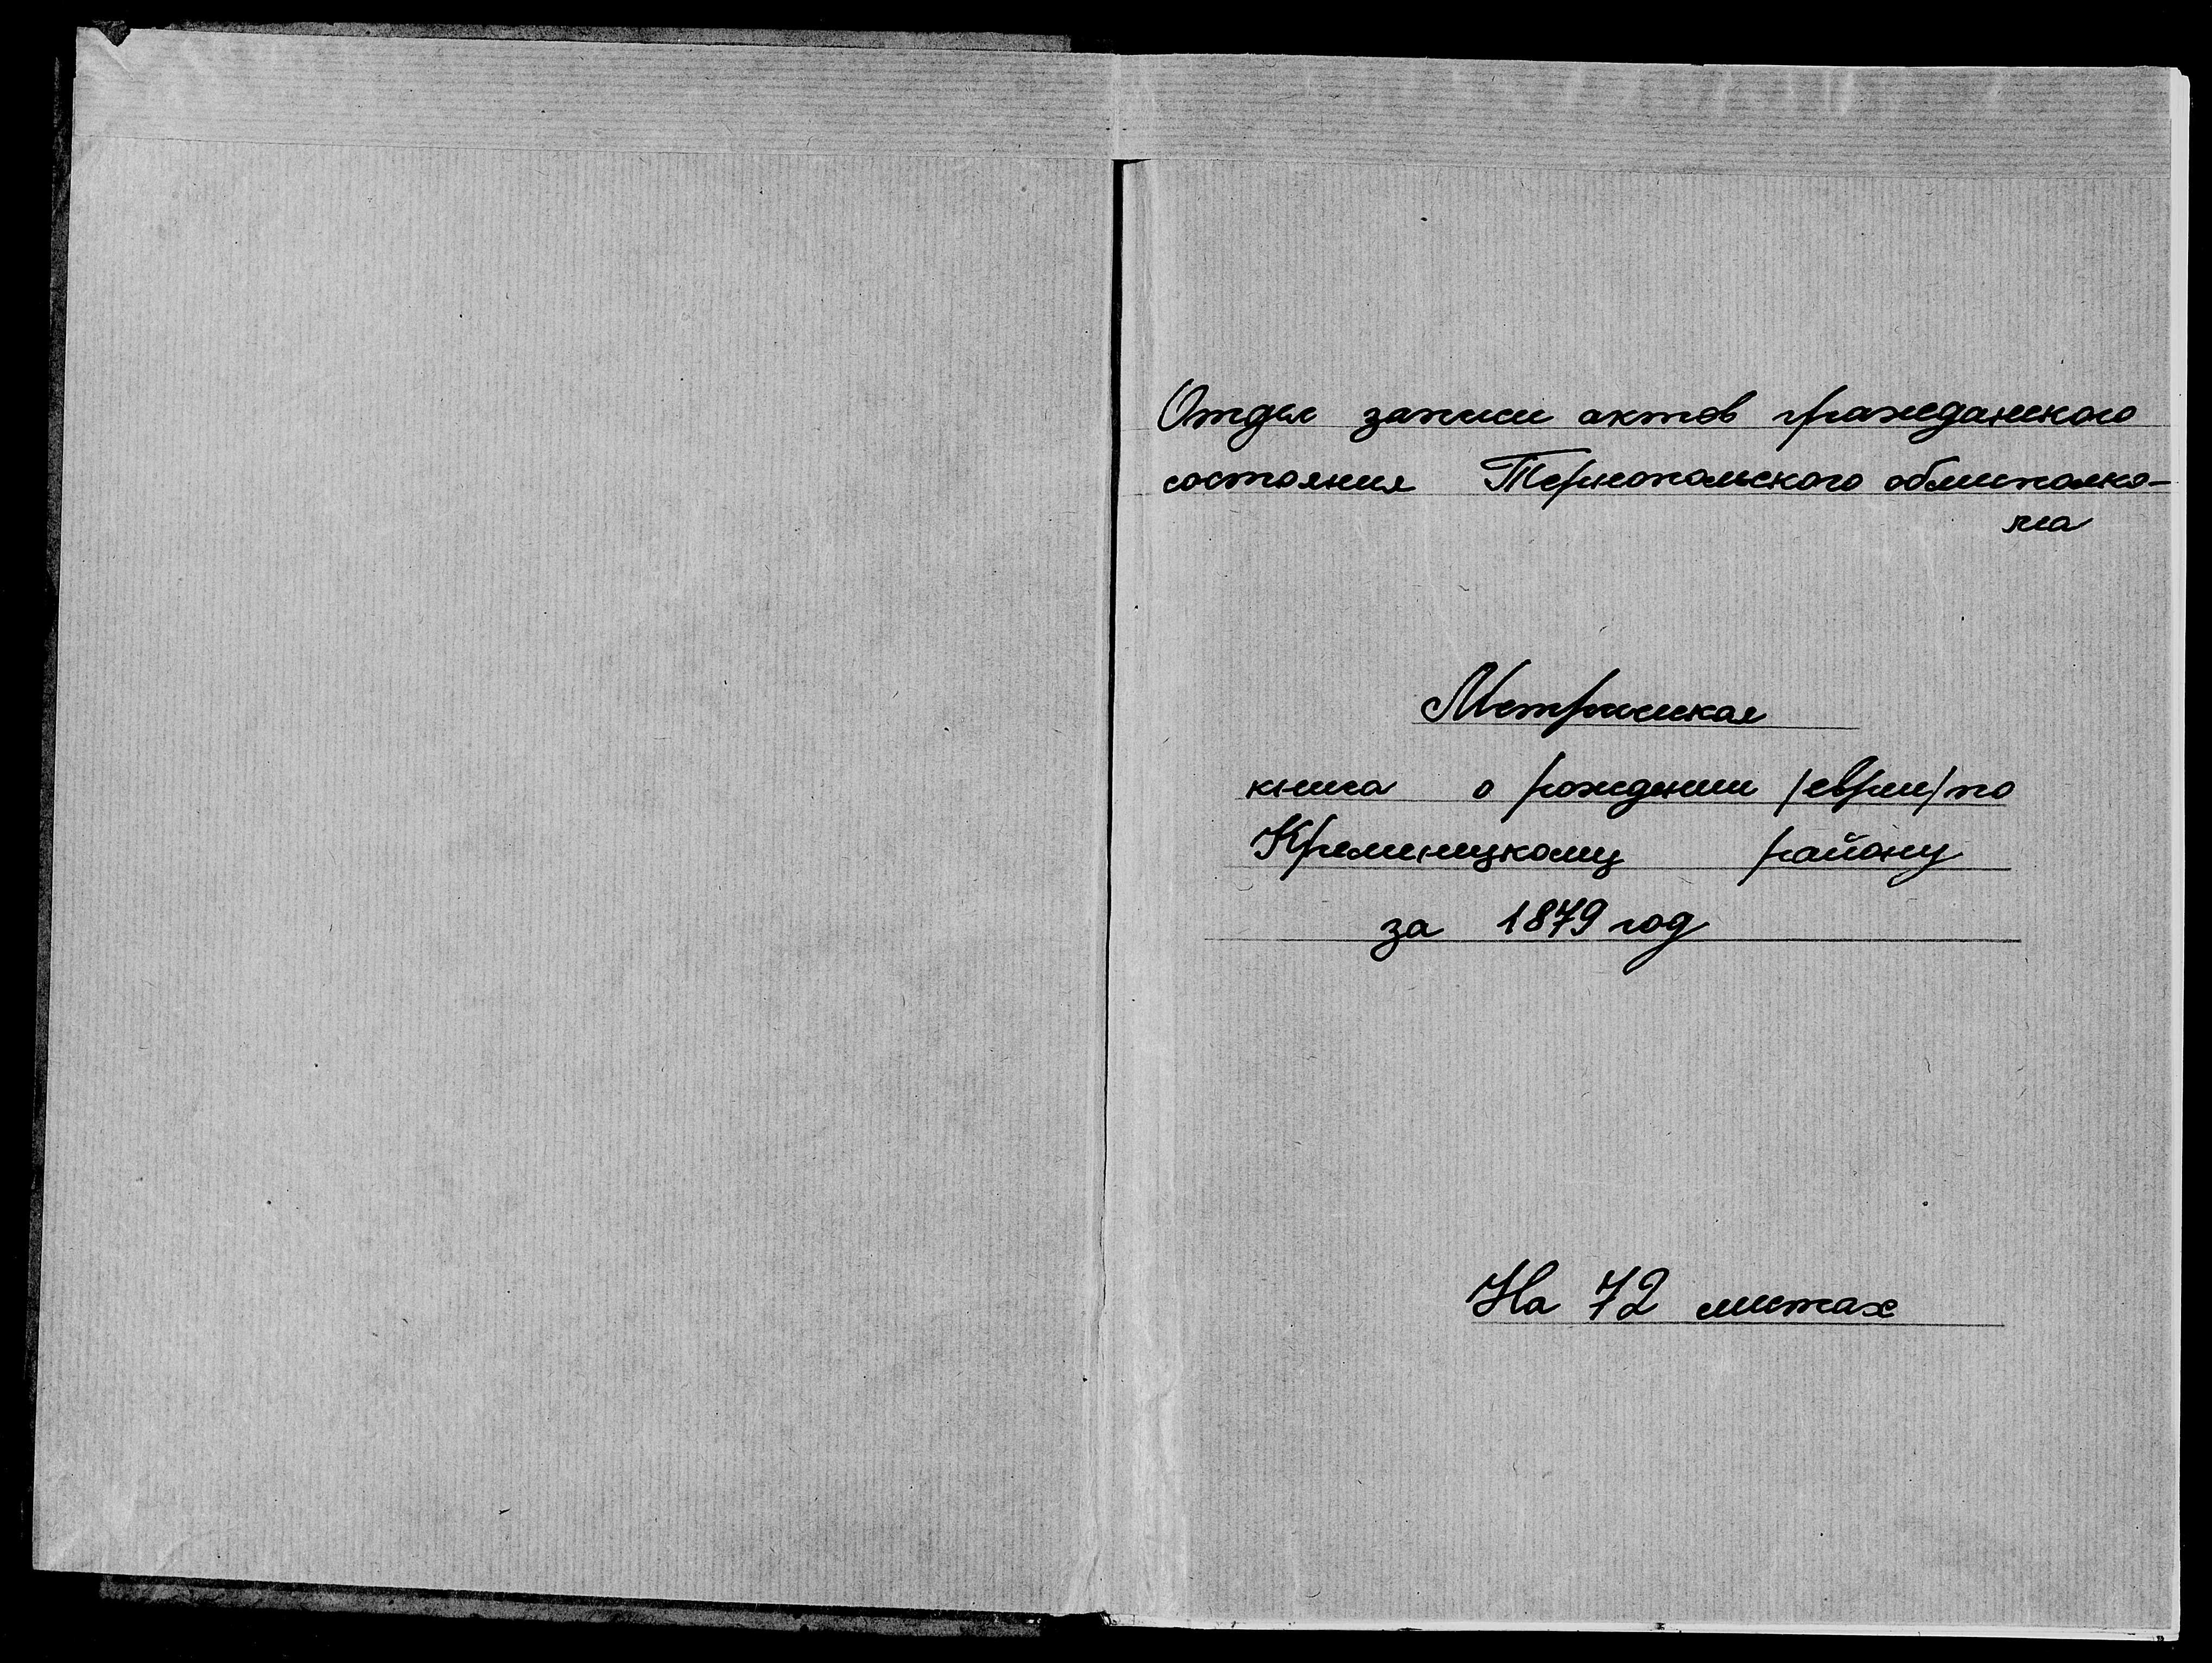 Отдел записи актов гражданского
состояния Тернопольского облисполко-
ма
Метрическая
книга о рождении /евреи/ по
Кременецкому району
за 1879 год
На 72 листах